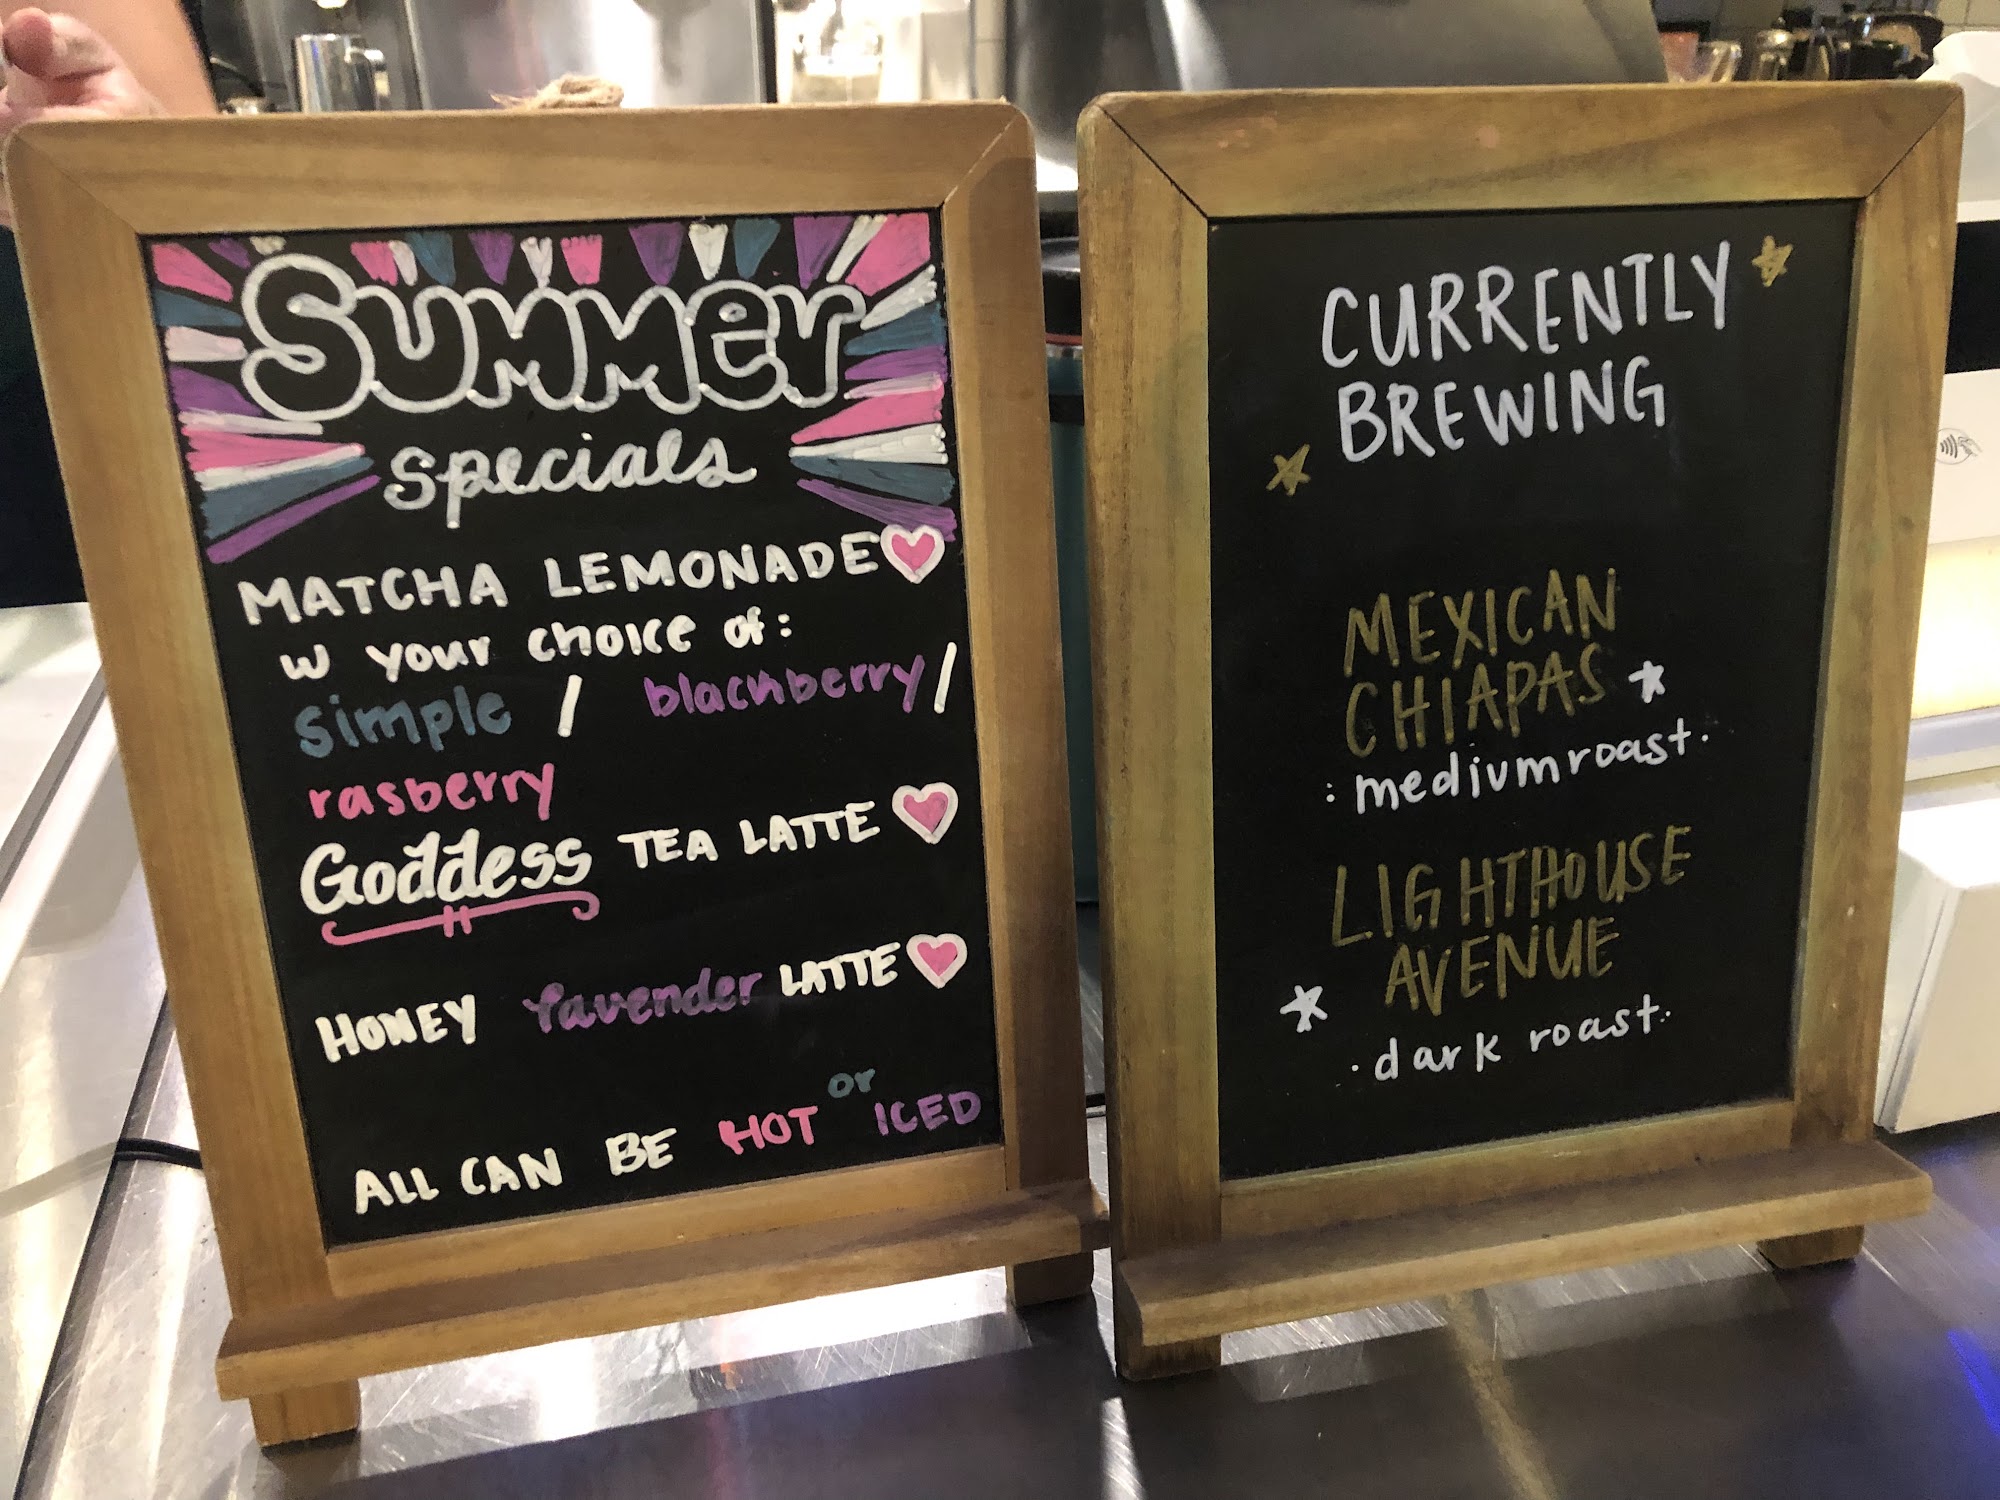 Summer
specials
MATCHA LEMONADE
w your choice of:
simple / blackberry /
rasberry
Goddess TEA LATTE
HONEY lavender LATTE
ALL CAN BE HOT or ICED
CURRENTLY
BREWING
MEXICAN
CHIAPAS
: medium roast.
LIGHTHOUSE
AVENUE
. dark roast:.